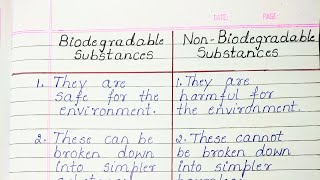 DATE: PAGE:
Biodegradable
Substances
Non-Biodegradable
Substances
1. They are
safe for the
environment.
1. They are
harmful for
the environment.
2. These can be
broken down
into simpler
2. These cannot
be broken down
into simpler